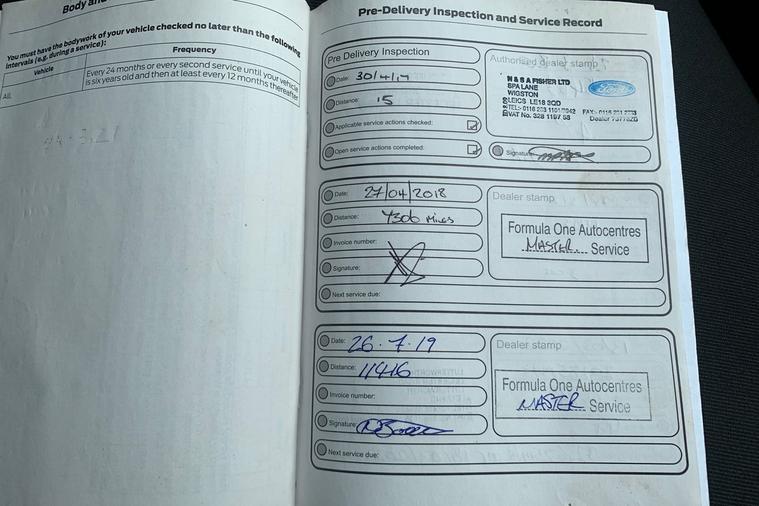 Body and
You must have the bodywork of your vehicle checked no later than the following
intervals (e.g. during a service):
Vehicle
Frequency
All.
Every 24 months or every second service until your vehicle
is six years old and then at least every 12 months thereafter.
Pre-Delivery Inspection and Service Record
Pre Delivery Inspection
Date: 30/4/17
Distance: 15
Applicable service actions checked:
Open service actions completed:
Authorised dealer stamp
N & S A FISHER LTD
SPA LANE
WIGSTON
LEICS LE18 3QD
VAT No. 328 1197 58
Ford
Signature:
Date: 27/04/2018
Distance: 7306 Miles
Invoice number:
Signature:
Next service due:
Dealer stamp
Formula One Autocentres
MASTER Service
Date: 26.7.19
Distance: 11416
Invoice number:
Signature:
Next service due:
Dealer stamp
Formula One Autocentres
MASTER Service